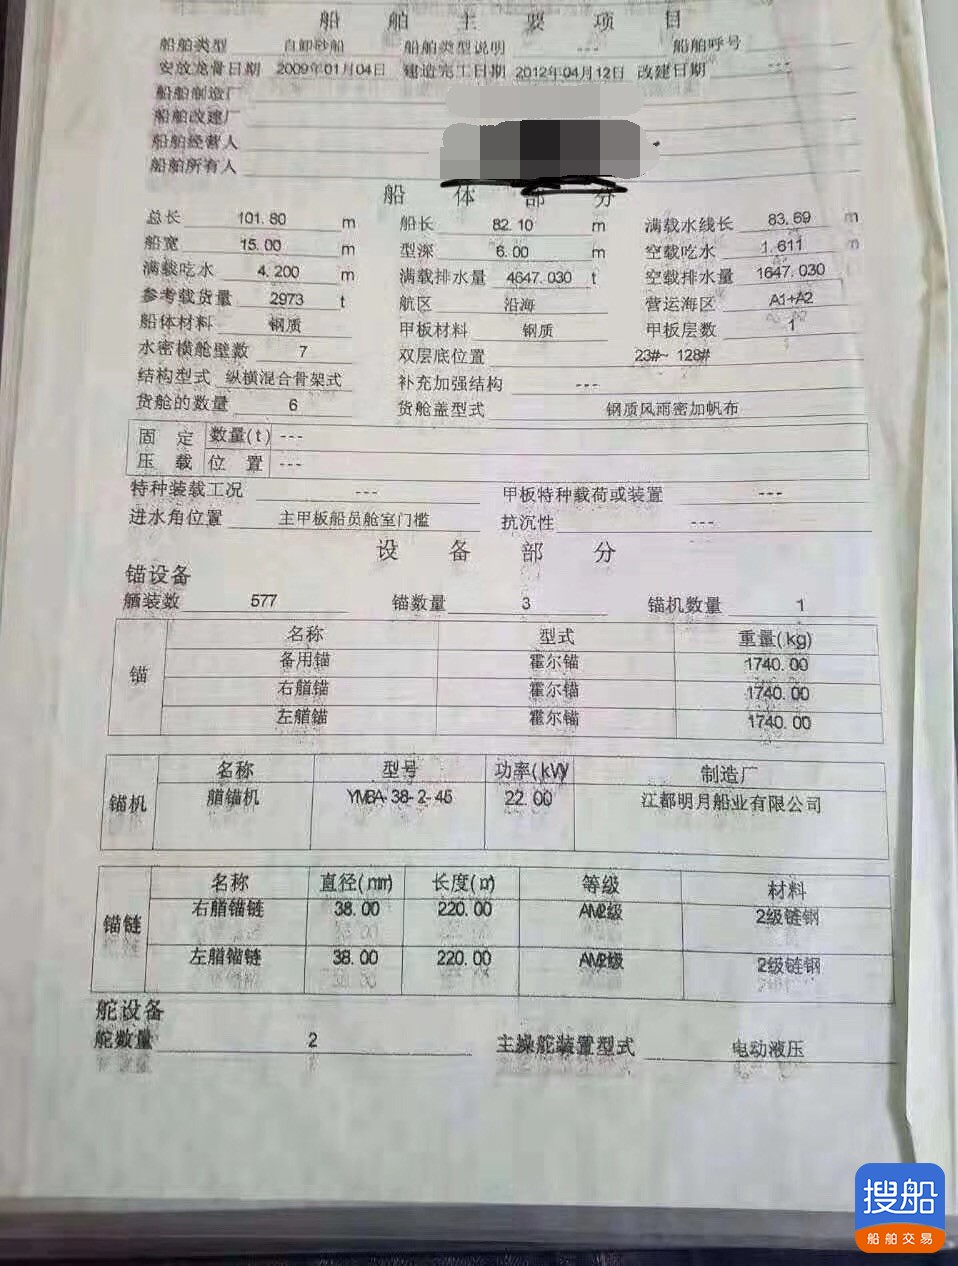 船舶主要项目
船舶类型 自卸砂船 船舶类型说明 --- 船舶呼号
安放龙骨日期 2009年01月04日 建造完工日期 2012年04月12日 改建日期 ---
船舶制造厂
船舶改建厂
船舶经营人
船舶所有人
船体部分
总长 101.80 m 船长 82.10 m 满载水线长 83.69 m
船宽 15.00 m 型深 6.00 m 空载吃水 1.611 m
满载吃水 4.200 m 满载排水量 4647.030 t 空载排水量 1647.030
参考载货量 2973 t 航区 沿海 营运海区 A1+A2
船体材料 钢质 甲板材料 钢质 甲板层数 1
水密横舱壁数 7 双层底位置 23#~ 128#
结构型式 纵横混合骨架式 补充加强结构 ---
货舱的数量 6 货舱盖型式 钢质风雨密加帆布
固定 数量(t) ---
压载 位置 ---
特种装载工况 --- 甲板特种载荷或装置 ---
进水角位置 主甲板船员舱室门槛 抗沉性 ---
设备部分
锚设备
舾装数 577 锚数量 3 锚机数量 1
名称 型式 重量(kg)
锚
备用锚 霍尔锚 1740.00
右艏锚 霍尔锚 1740.00
左艏锚 霍尔锚 1740.00
名称 型号 功率(kW) 制造厂
锚机 艏锚机 YMBA-38-2-45 22.00 江都明月船业有限公司
名称 直径(mm) 长度(m) 等级 材料
锚链
右艏锚链 38.00 220.00 AM2级 2级链钢
左艏锚链 38.00 220.00 AM2级 2级链钢
舵设备
舵数量 2 主操舵装置型式 电动液压
搜船
船舶交易